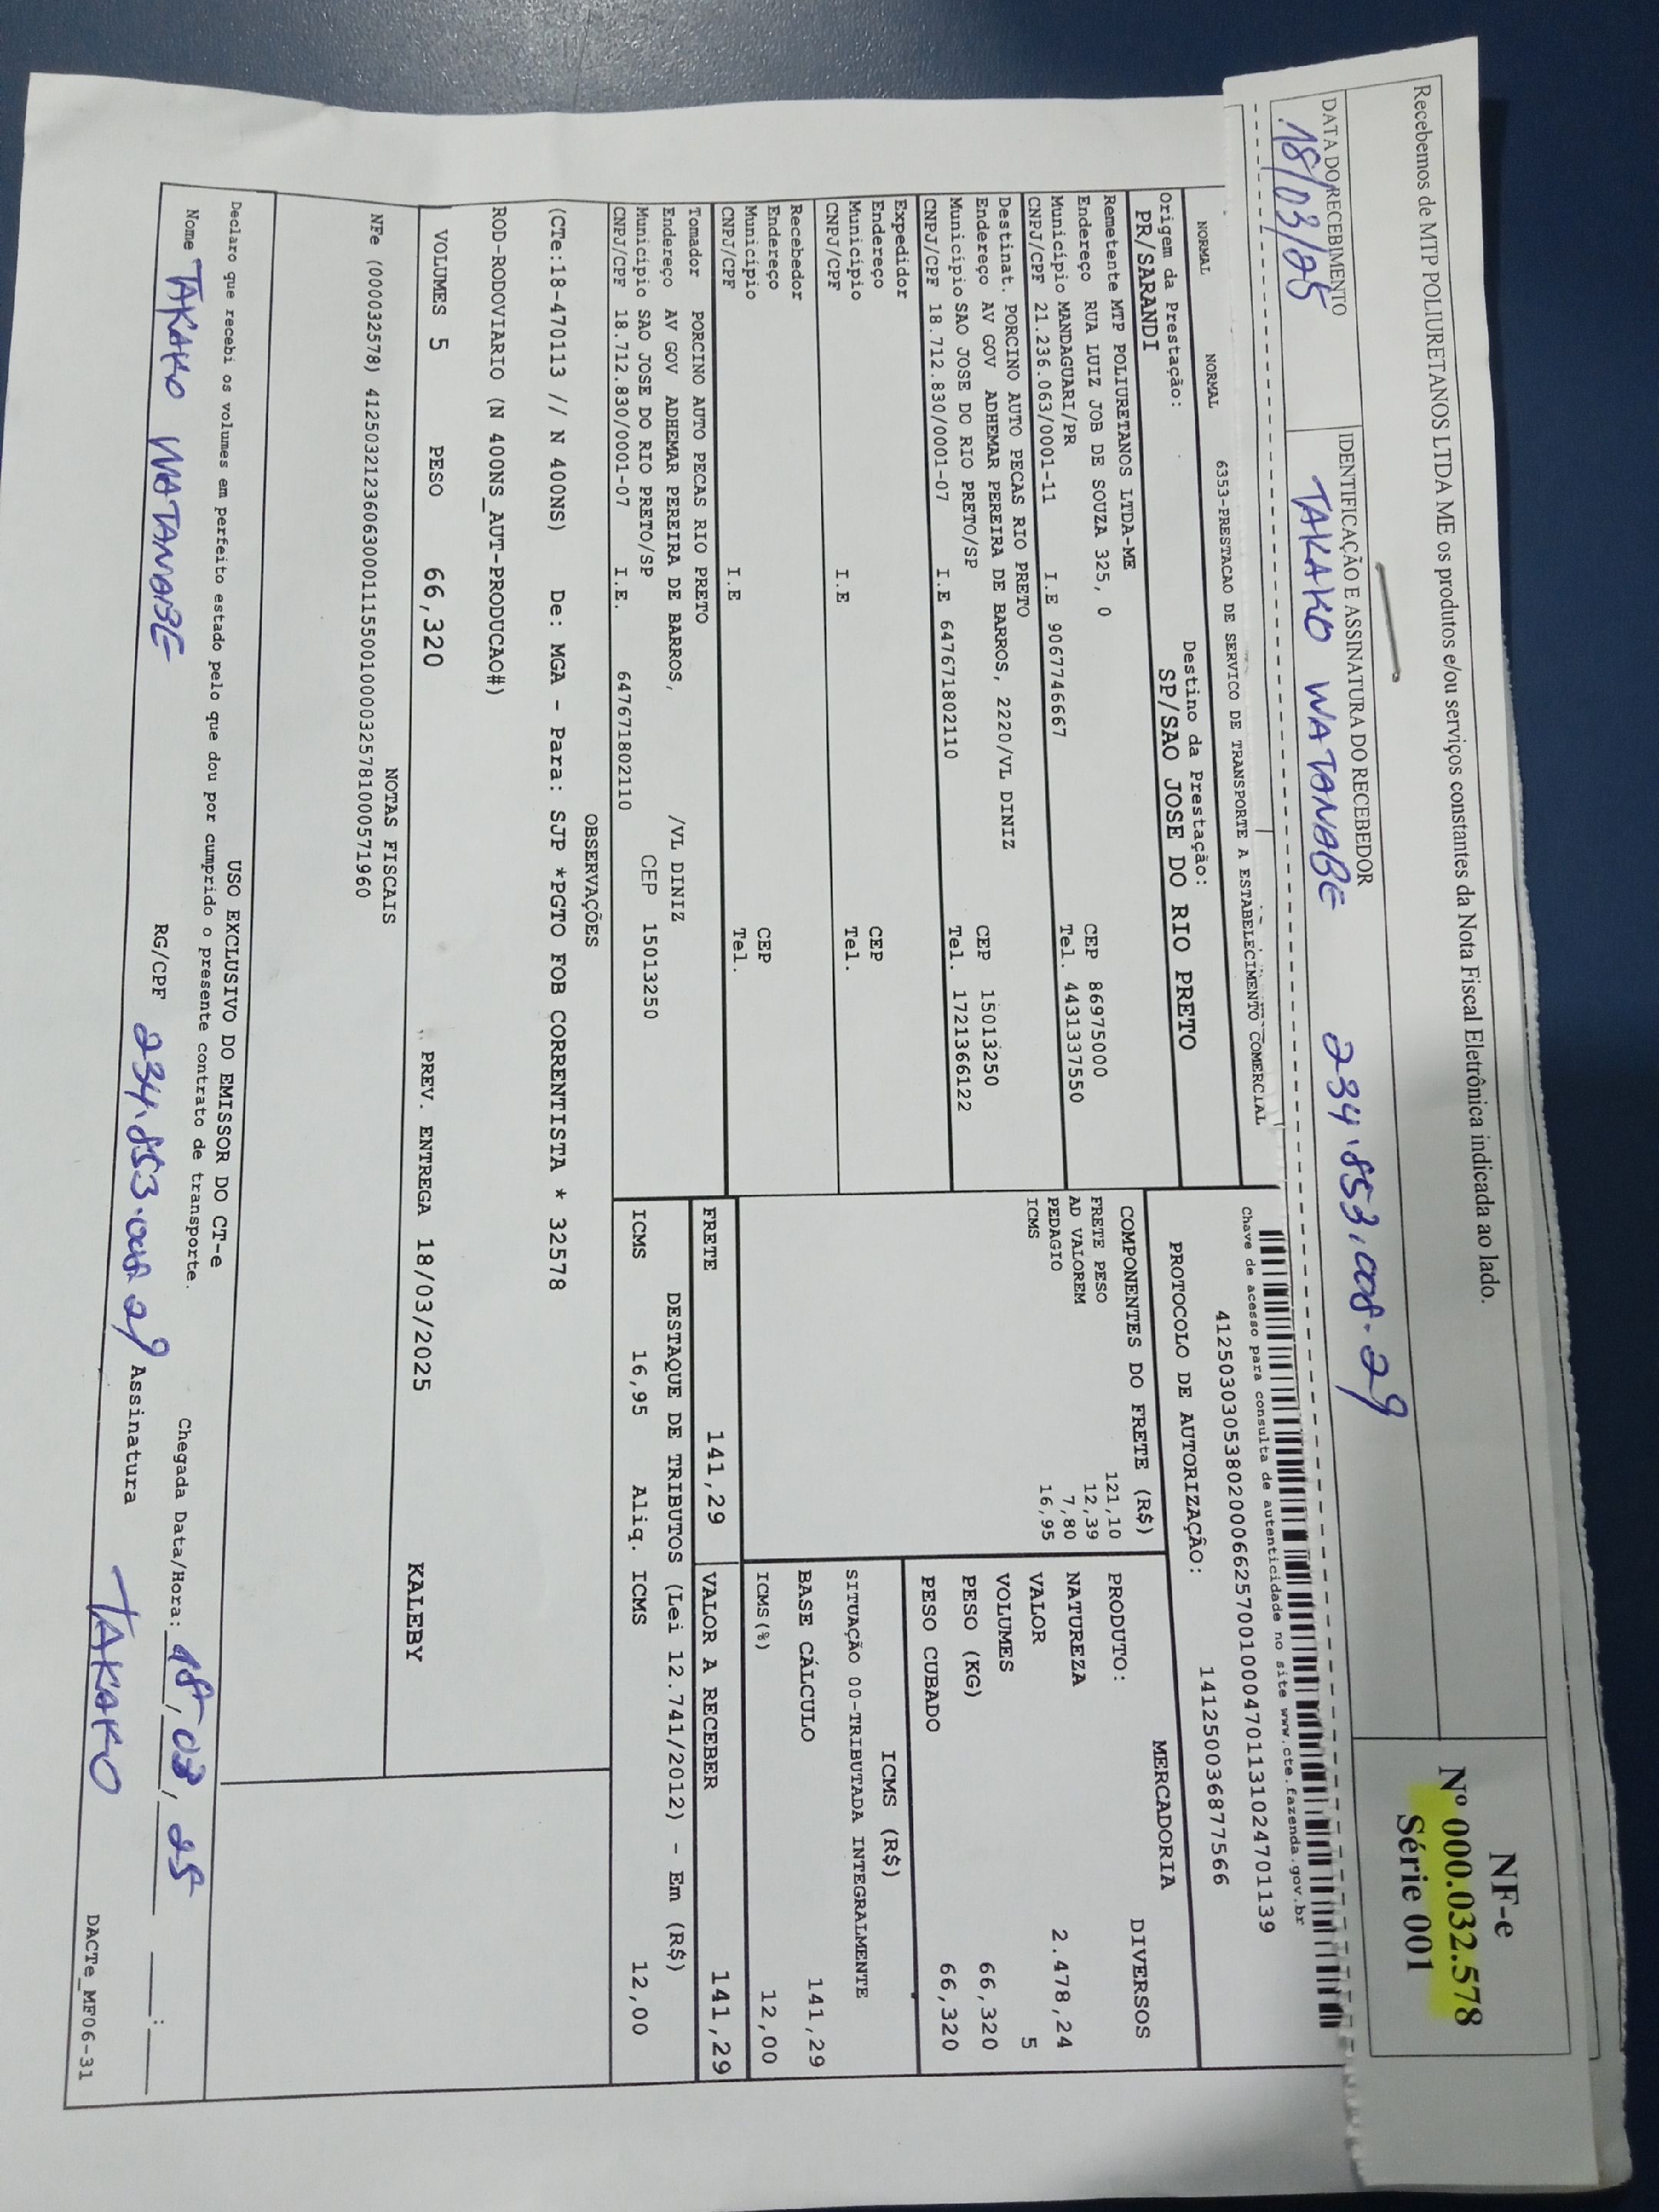 Recebemos de MTP POLIURETANOS LTDA ME os produtos e/ou serviços constantes da Nota Fiscal Eletrônica indicada ao lado.
NF-e
Nº 000.032.578
Série 001
DATA DO RECEBIMENTO
IDENTIFICAÇÃO E ASSINATURA DO RECEBEDOR
18/03/25
TAKAKO WATANABE 234.853.008.29
Chave de acesso para consulta de autenticidade no site www.cte.fazenda.gov.br
41250303053802000662570010004701131024701139
NORMAL NORMAL 6353-PRESTACAO DE SERVICO DE TRANSPORTE A ESTABELECIMENTO COMERCIAL
PROTOCOLO DE AUTORIZAÇÃO: 141250036877566
Origem da Prestação: Destino da Prestação:
PR/SARANDI SP/SAO JOSE DO RIO PRETO
Remetente MTP POLIURETANOS LTDA-ME
Endereço RUA LUIZ JOB DE SOUZA 325, 0 CEP 86975000
Município MANDAGUARI/PR Tel. 44313375550
CNPJ/CPF 21.236.063/0001-11 I.E 9067746667
Destinat. PORCINO AUTO PECAS RIO PRETO
Endereço AV GOV ADHEMAR PEREIRA DE BARROS, 2220/VL DINIZ CEP 15013250
Município SAO JOSE DO RIO PRETO/SP Tel. 1721366122
CNPJ/CPF 18.712.830/0001-07 I.E 647671802110
Expedidor
Endereço CEP
Município Tel.
CNPJ/CPF I.E
Recebedor
Endereço CEP
Município Tel.
CNPJ/CPF I.E
Tomador PORCINO AUTO PECAS RIO PRETO
Endereço AV GOV ADHEMAR PEREIRA DE BARROS, /VL DINIZ
Município SAO JOSE DO RIO PRETO/SP CEP 15013250
CNPJ/CPF 18.712.830/0001-07 I.E. 647671802110
COMPONENTES DO FRETE (R$)
FRETE PESO 121,10
AD VALOREM 12,39
PEDAGIO 7,80
ICMS 16,95
MERCADORIA
PRODUTO: DIVERSOS
NATUREZA
VALOR 2.478,24
VOLUMES 5
PESO (KG) 66,320
PESO CUBADO 66,320
ICMS (R$)
SITUAÇÃO 00-TRIBUTADA INTEGRALMENTE
BASE CÁLCULO 141,29
ICMS(%) 12,00
FRETE 141,29 VALOR A RECEBER 141,29
DESTAQUE DE TRIBUTOS (Lei 12.741/2012) - Em (R$)
ICMS 16,95 Aliq. ICMS 12,00
OBSERVAÇÕES
(CTe:18-470113 // N 400NS) De: MGA - Para: SJP *PGTO FOB CORRENTISTA * 32578
ROD-RODOVIARIO (N 400NS_AUT-PRODUCAO#)
VOLUMES 5 PESO 66,320 PREV. ENTREGA 18/03/2025 KALEBY
NOTAS FISCAIS
NFe (000032578) 41250321236063000111550010000325781000571960
USO EXCLUSIVO DO EMISSOR DO CT-e
Declaro que recebi os volumes em perfeito estado pelo que dou por cumprido o presente contrato de transporte.
Chegada Data/Hora: 18/03/25 __:__
Nome TAKAKO WATANABE RG/CPF 234.853.008 29 Assinatura TAKAKO
DACTe_MF06-31